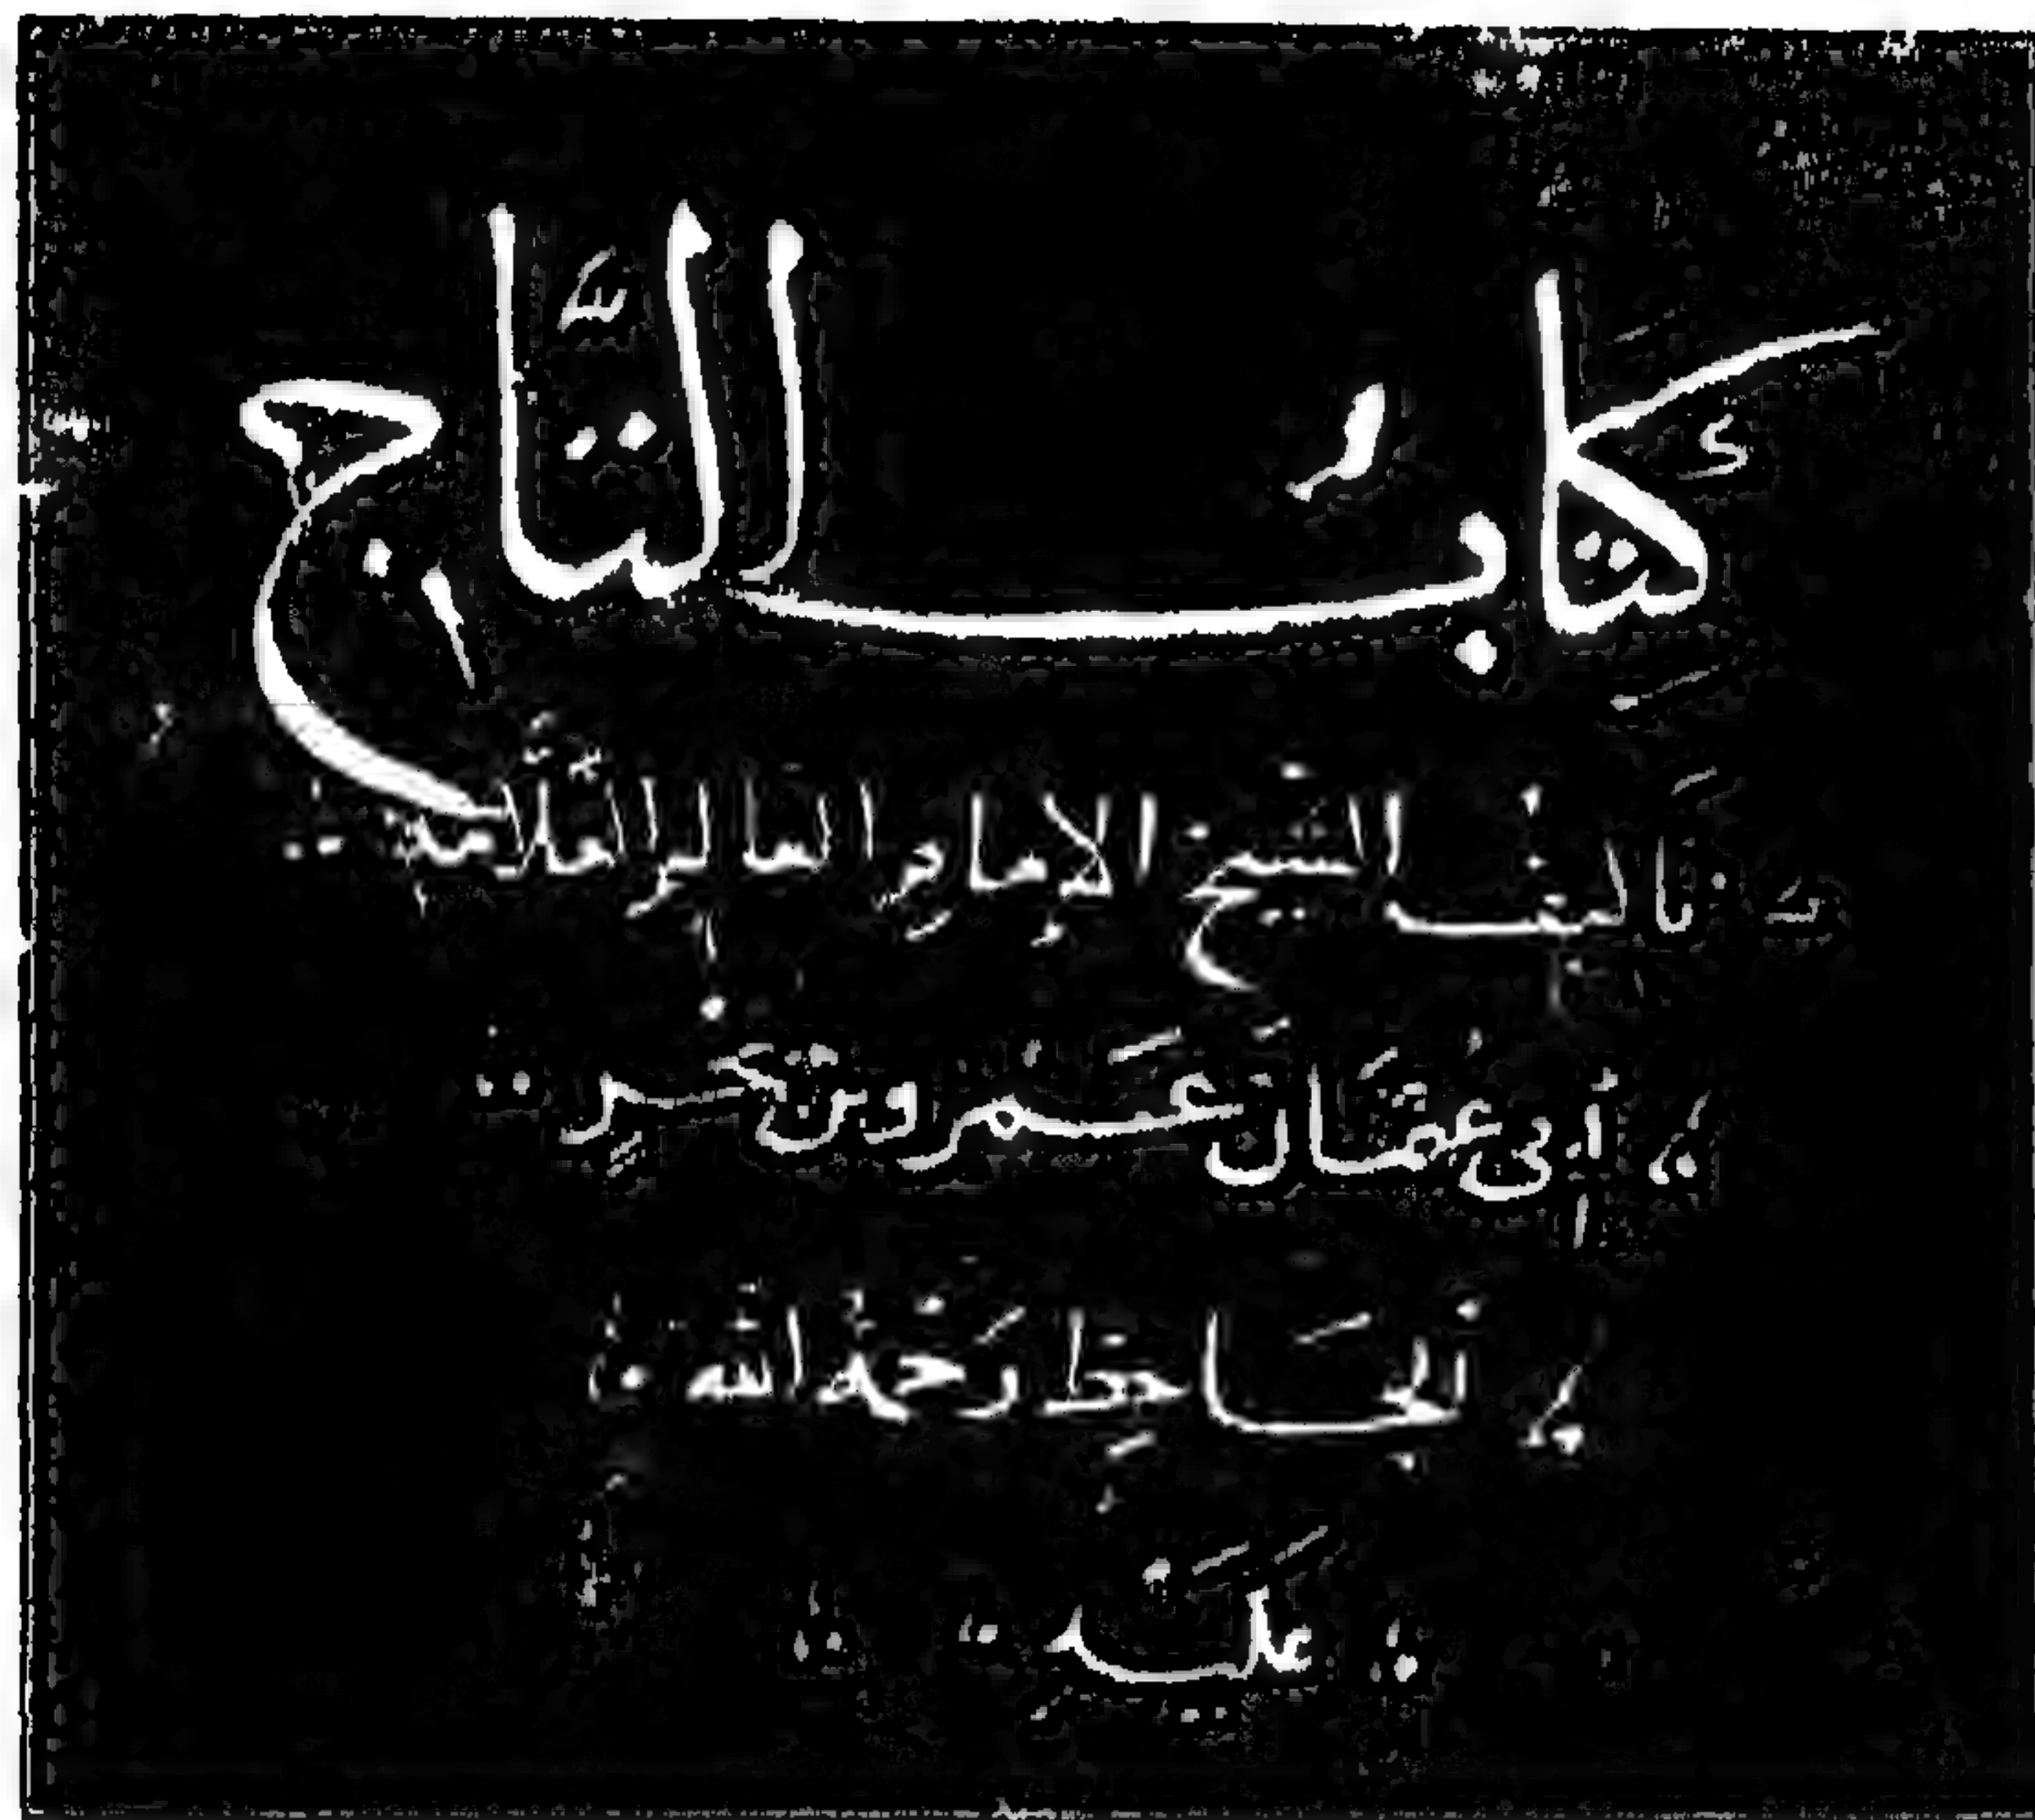 كتابُ التّاجِ
تأليف الشيخ الإمامِ العالم العلّامة
أبى عُثمَان عَمْرو بن بحرٍ
الجَاحِظِ رَحْمةُ الله
عَلَيْه